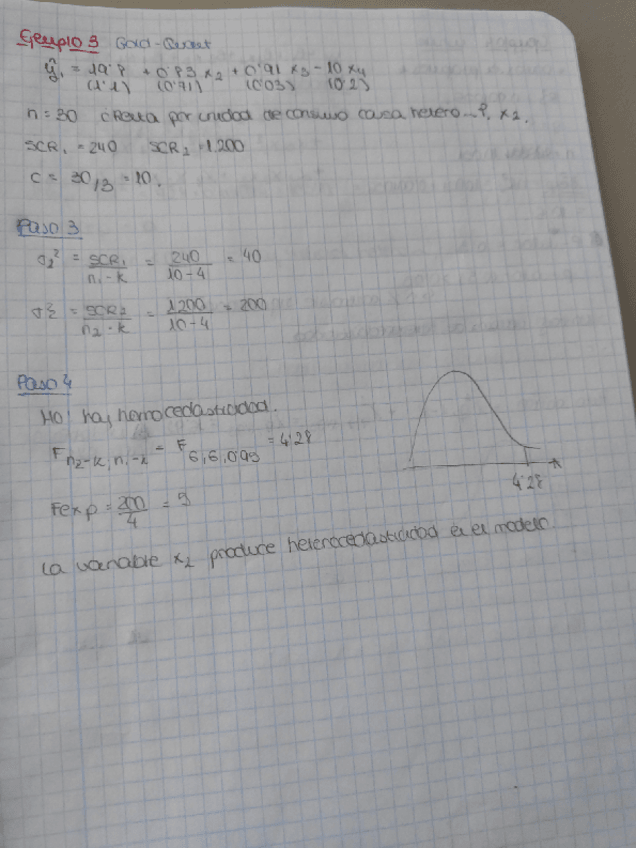 Ejemplo 3 Gold-Quant
ŷ₁ = 19'8 + 0'83 x₂ + 0'91 x₃ - 10 x₄
(1'1) (0'71) (0'03) (0'2)
n = 30 ¿Renta por unidad de consumo causa hetero...?, x₂.
SCR₁ = 240 SCR₂ = 1.200
C = 30/3 = 10.
Paso 3
σ₁² = SCR₁ / n₁-k = 240 / 10-4 = 40
σ₂² = SCR₂ / n₂-k = 1200 / 10-4 = 200
Paso 4
H0: hay homocedasticidad.
F n₂-k, n₁-k = F 6,6,0'95 = 4'28
4'28
Fexp = 200 / 4 = 5
La variable x₂ produce heterocedasticidad en el modelo.